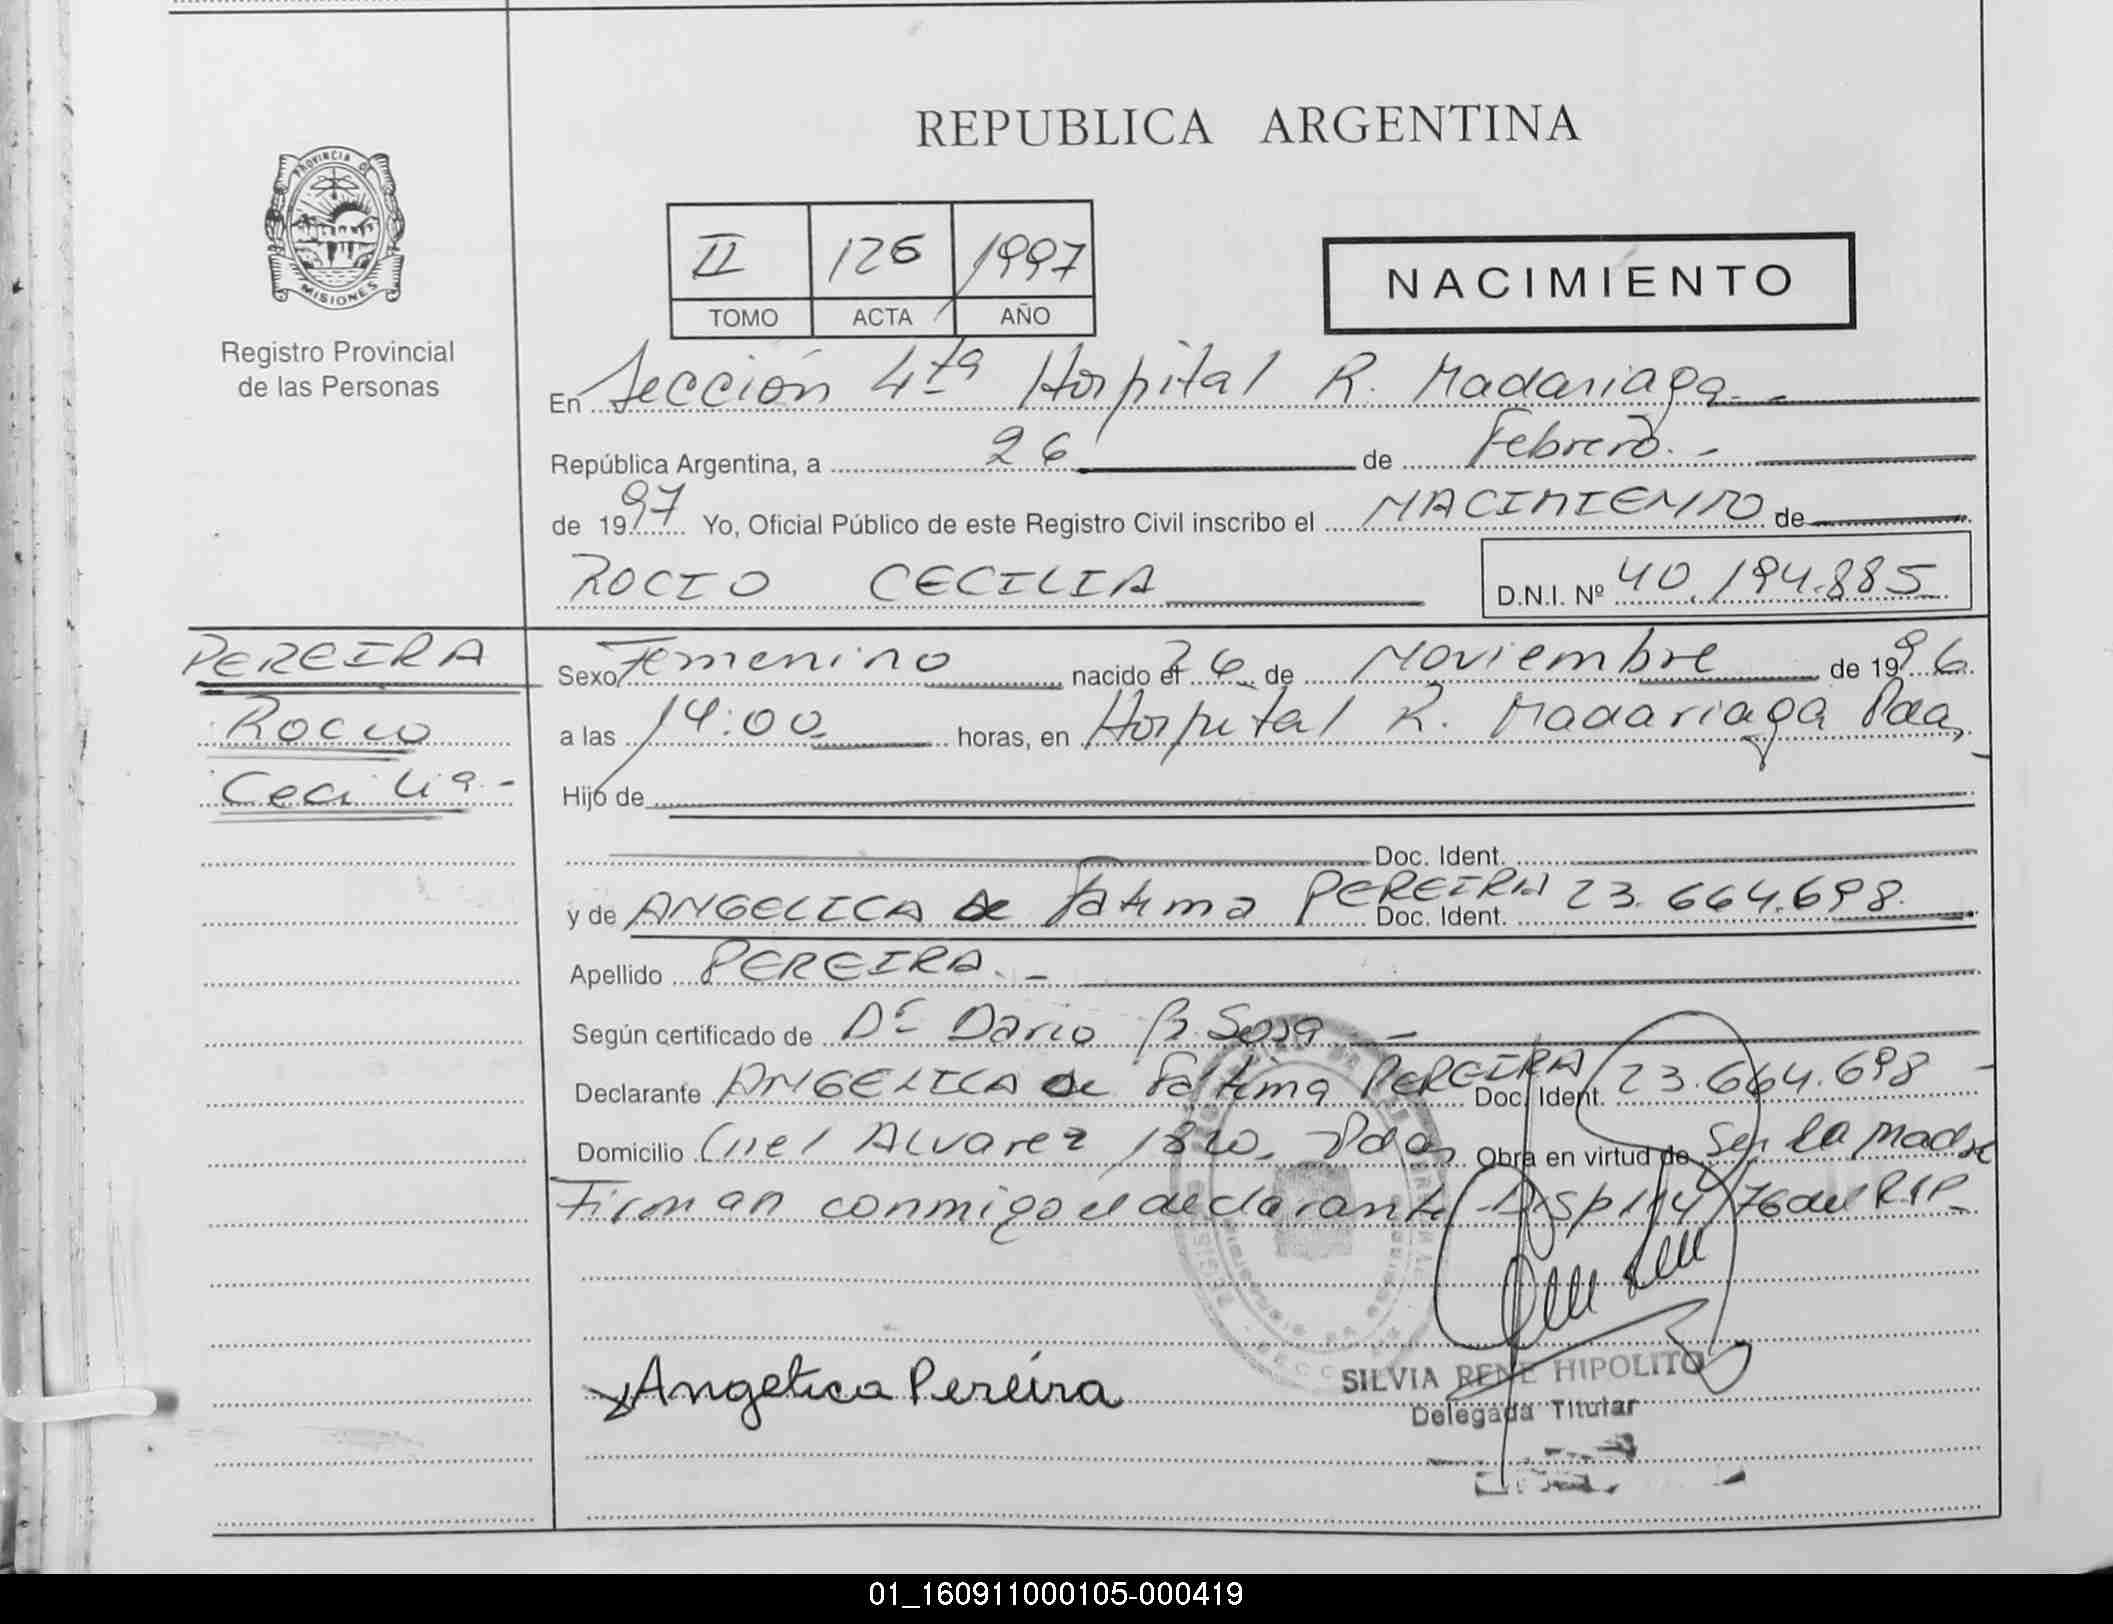 REPUBLICA ARGENTINA
PROVINCIA DE
MISIONES
Registro Provincial
de las Personas
II 126 1997
TOMO ACTA AÑO
NACIMIENTO
En Sección 4ta Hospital R. Madariaga.-
República Argentina, a 26 de Febrero.-
de 1997 Yo, Oficial Público de este Registro Civil inscribo el NACIMIENTO de
ROCIO CECILIA D.N.I. Nº 40.194.885
PEREIRA
Rocio
Cecilia.-
Sexo Femenino nacido el 26 de Noviembre de 1996.
a las 14:00 horas, en Hospital R. Madariaga Pdas,
Hijo de
Doc. Ident.
y de ANGELICA de Fatima PEREIRA Doc. Ident. 23.664.698.
Apellido PEREIRA.-
Según certificado de Dr Dario B. Sosa -
Declarante ANGELICA de Fatima PEREIRA Doc. Ident. 23.664.698 -
Domicilio Cnel Alvarez 1820, Pdas Obra en virtud de Ser la Madre
Firman conmigo el declarante Disp 114/76 del RSP-
Angelica Pereira
SILVIA RENE HIPOLITO
Delegada Titular
01_160911000105-000419